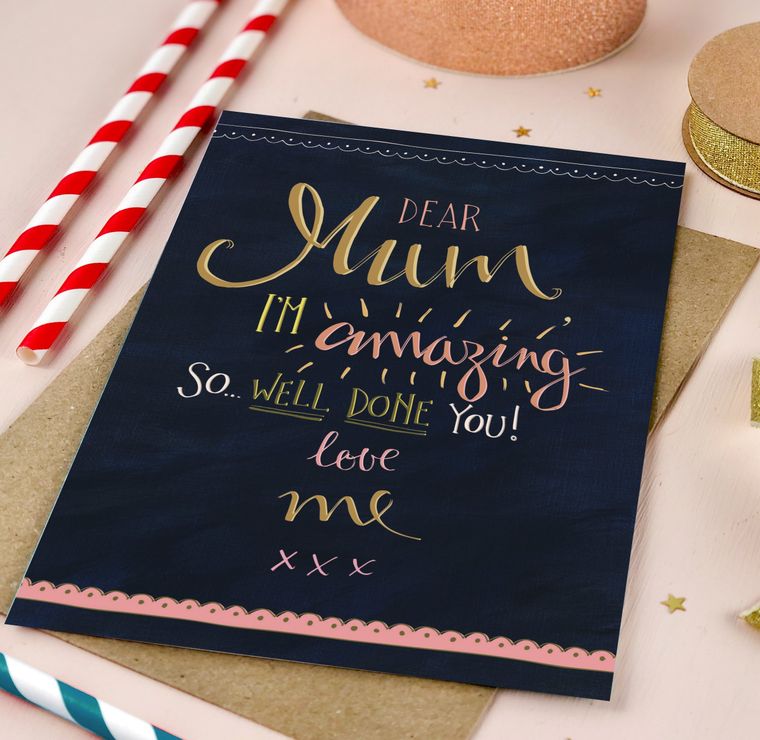 DEAR
Mum,
I'M amazing
SO... WELL DONE YOU!
love
me
x x x